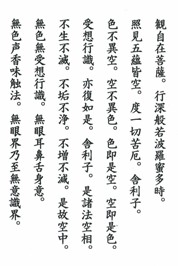 観自在菩薩。行深般若波羅蜜多時。
照見五蘊皆空。度一切苦厄。舎利子。
色不異空。空不異色。色即是空。空即是色。
受想行識。亦復如是。舎利子。是諸法空相。
不生不滅。不垢不浄。不増不減。是故空中。
無色無受想行識。無眼耳鼻舌身意。
無色声香味触法。無眼界乃至無意識界。